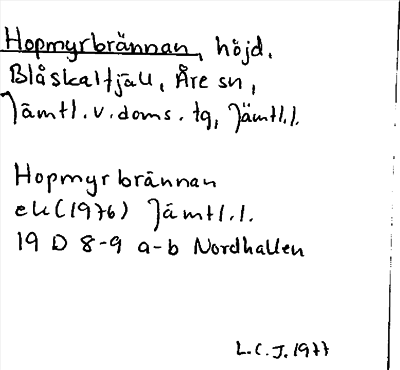 Hopmyrbrännan, höjd.
Blåskalfjäll, Åre sn,
Jämtl. v. doms. tg, Jämtl. l.
Hopmyrbrännan
ek (1976) Jämtl. l.
19 D 8-9 a-b Nordhallen
L. C. J. 1977